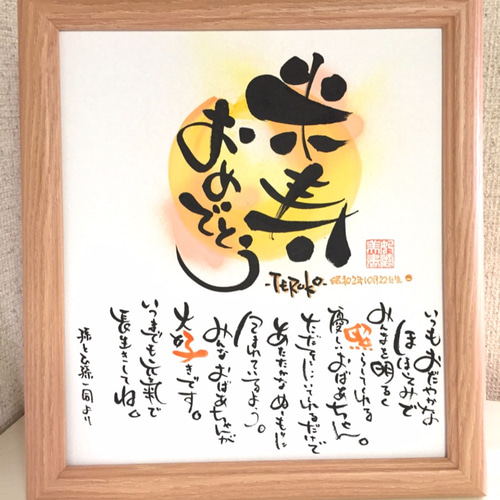 米寿
おめでとう
-TERUKO-
昭和2年10月22日生
いつもおだやかな
ほほえみで
みんなを明るく
照らしてくれる
優しいおばあちゃん。
ただそこにいてくれるだけで
あたたかなぬくもりに
包まれているよう。
みんなおばあちゃんが
大好きです。
いつまでも元氣で
長生きしてね。
孫とひ孫一同より